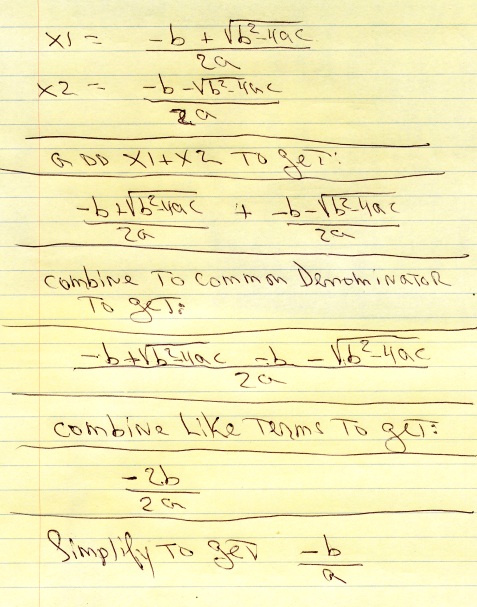 x1 = (-b + √(b²-4ac)) / 2a
x2 = (-b - √(b²-4ac)) / 2a
ADD x1+x2 To geT:
(-b+√(b²-4ac)) / 2a + (-b-√(b²-4ac)) / 2a
combine To common DenomiNAToR
To geT:
(-b+√(b²-4ac) -b - √(b²-4ac)) / 2a
combiNe Like Terms To geT:
-2b / 2a
Simplify To geT -b / a